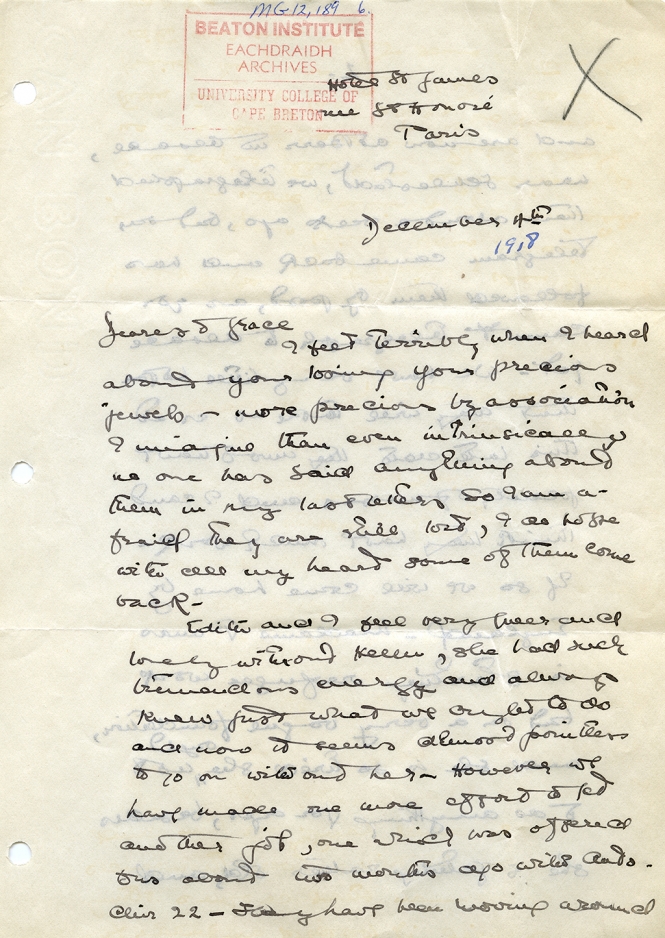 MG 12, 189 6.
BEATON INSTITUTE
EACHDRAIDH
ARCHIVES
UNIVERSITY COLLEGE OF
CAPE BRETON
Hotel St James
rue St Honoré
Paris
December 4th
1918
Dearest Grace
I feel terribly when I heard
about your losing your precious
jewels – more precious by association
I imagine than even intrinsically
no one has said anything about
them in my last letters so I am a-
fraid they are still lost, I do hope
with all my heart some of them come
back –
Edith and I feel very queer and
lonely without Hellen, she had such
tremendous energy and always
knew just what we ought to do
and now it seems almost pointless
to go on without her – However we
have made one more effort to get
another job, one which was offered
us about two months ago with Auto-
Chir 22 – They have been moving around